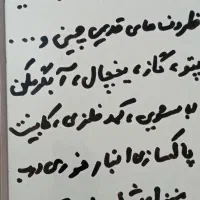 ظروف های قدیمی چینی و...
پتو، گاز، یخچال، آبگرمکن
لباسشویی، کمد فلزی، کابینت
پاکسازی انبار فوری درب